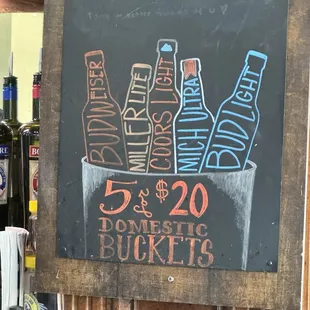 BUDWEISER
MILLER LITE
COORS LIGHT
MICH ULTRA
BUD LIGHT
5 for $20
DOMESTIC
BUCKETS